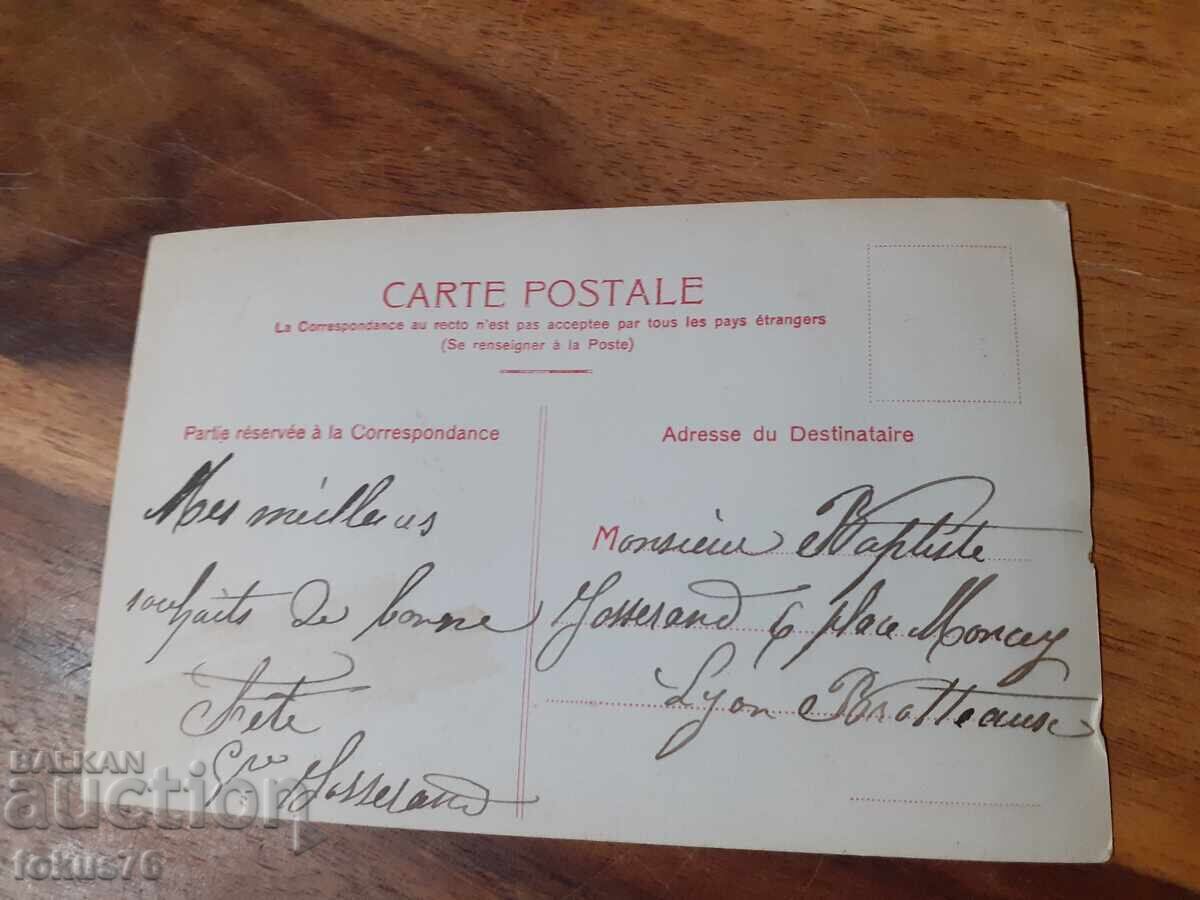 CARTE POSTALE
La Correspondance au recto n'est pas acceptee par tous les pays étrangers
(Se renseigner à la Poste)
Partie réservée à la Correspondance
Mes meilleurs
souhaits de bonne
Fête
Josserand
Adresse du Destinataire
Monsieur Baptiste
Josserand 6 place Moncey
Lyon Brotteaux
BALKAN
auction
tokus76